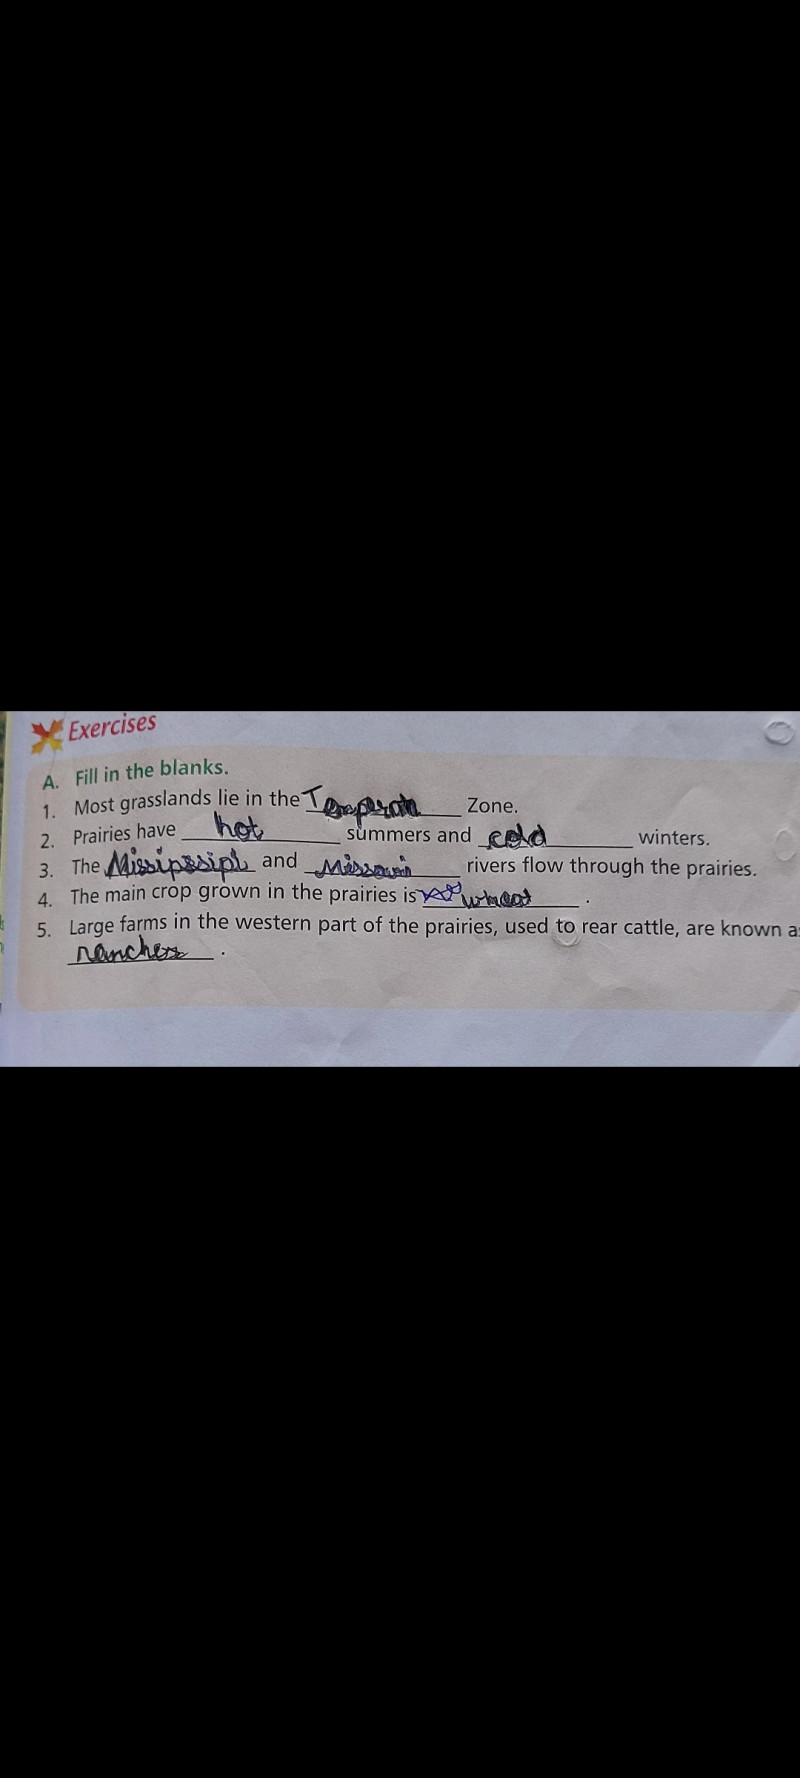 Exercises
A. Fill in the blanks.
1. Most grasslands lie in the Temperate Zone.
2. Prairies have hot summers and cold winters.
3. The Missipssipi and Missouri rivers flow through the prairies.
4. The main crop grown in the prairies is wheat.
5. Large farms in the western part of the prairies, used to rear cattle, are known as
ranches.